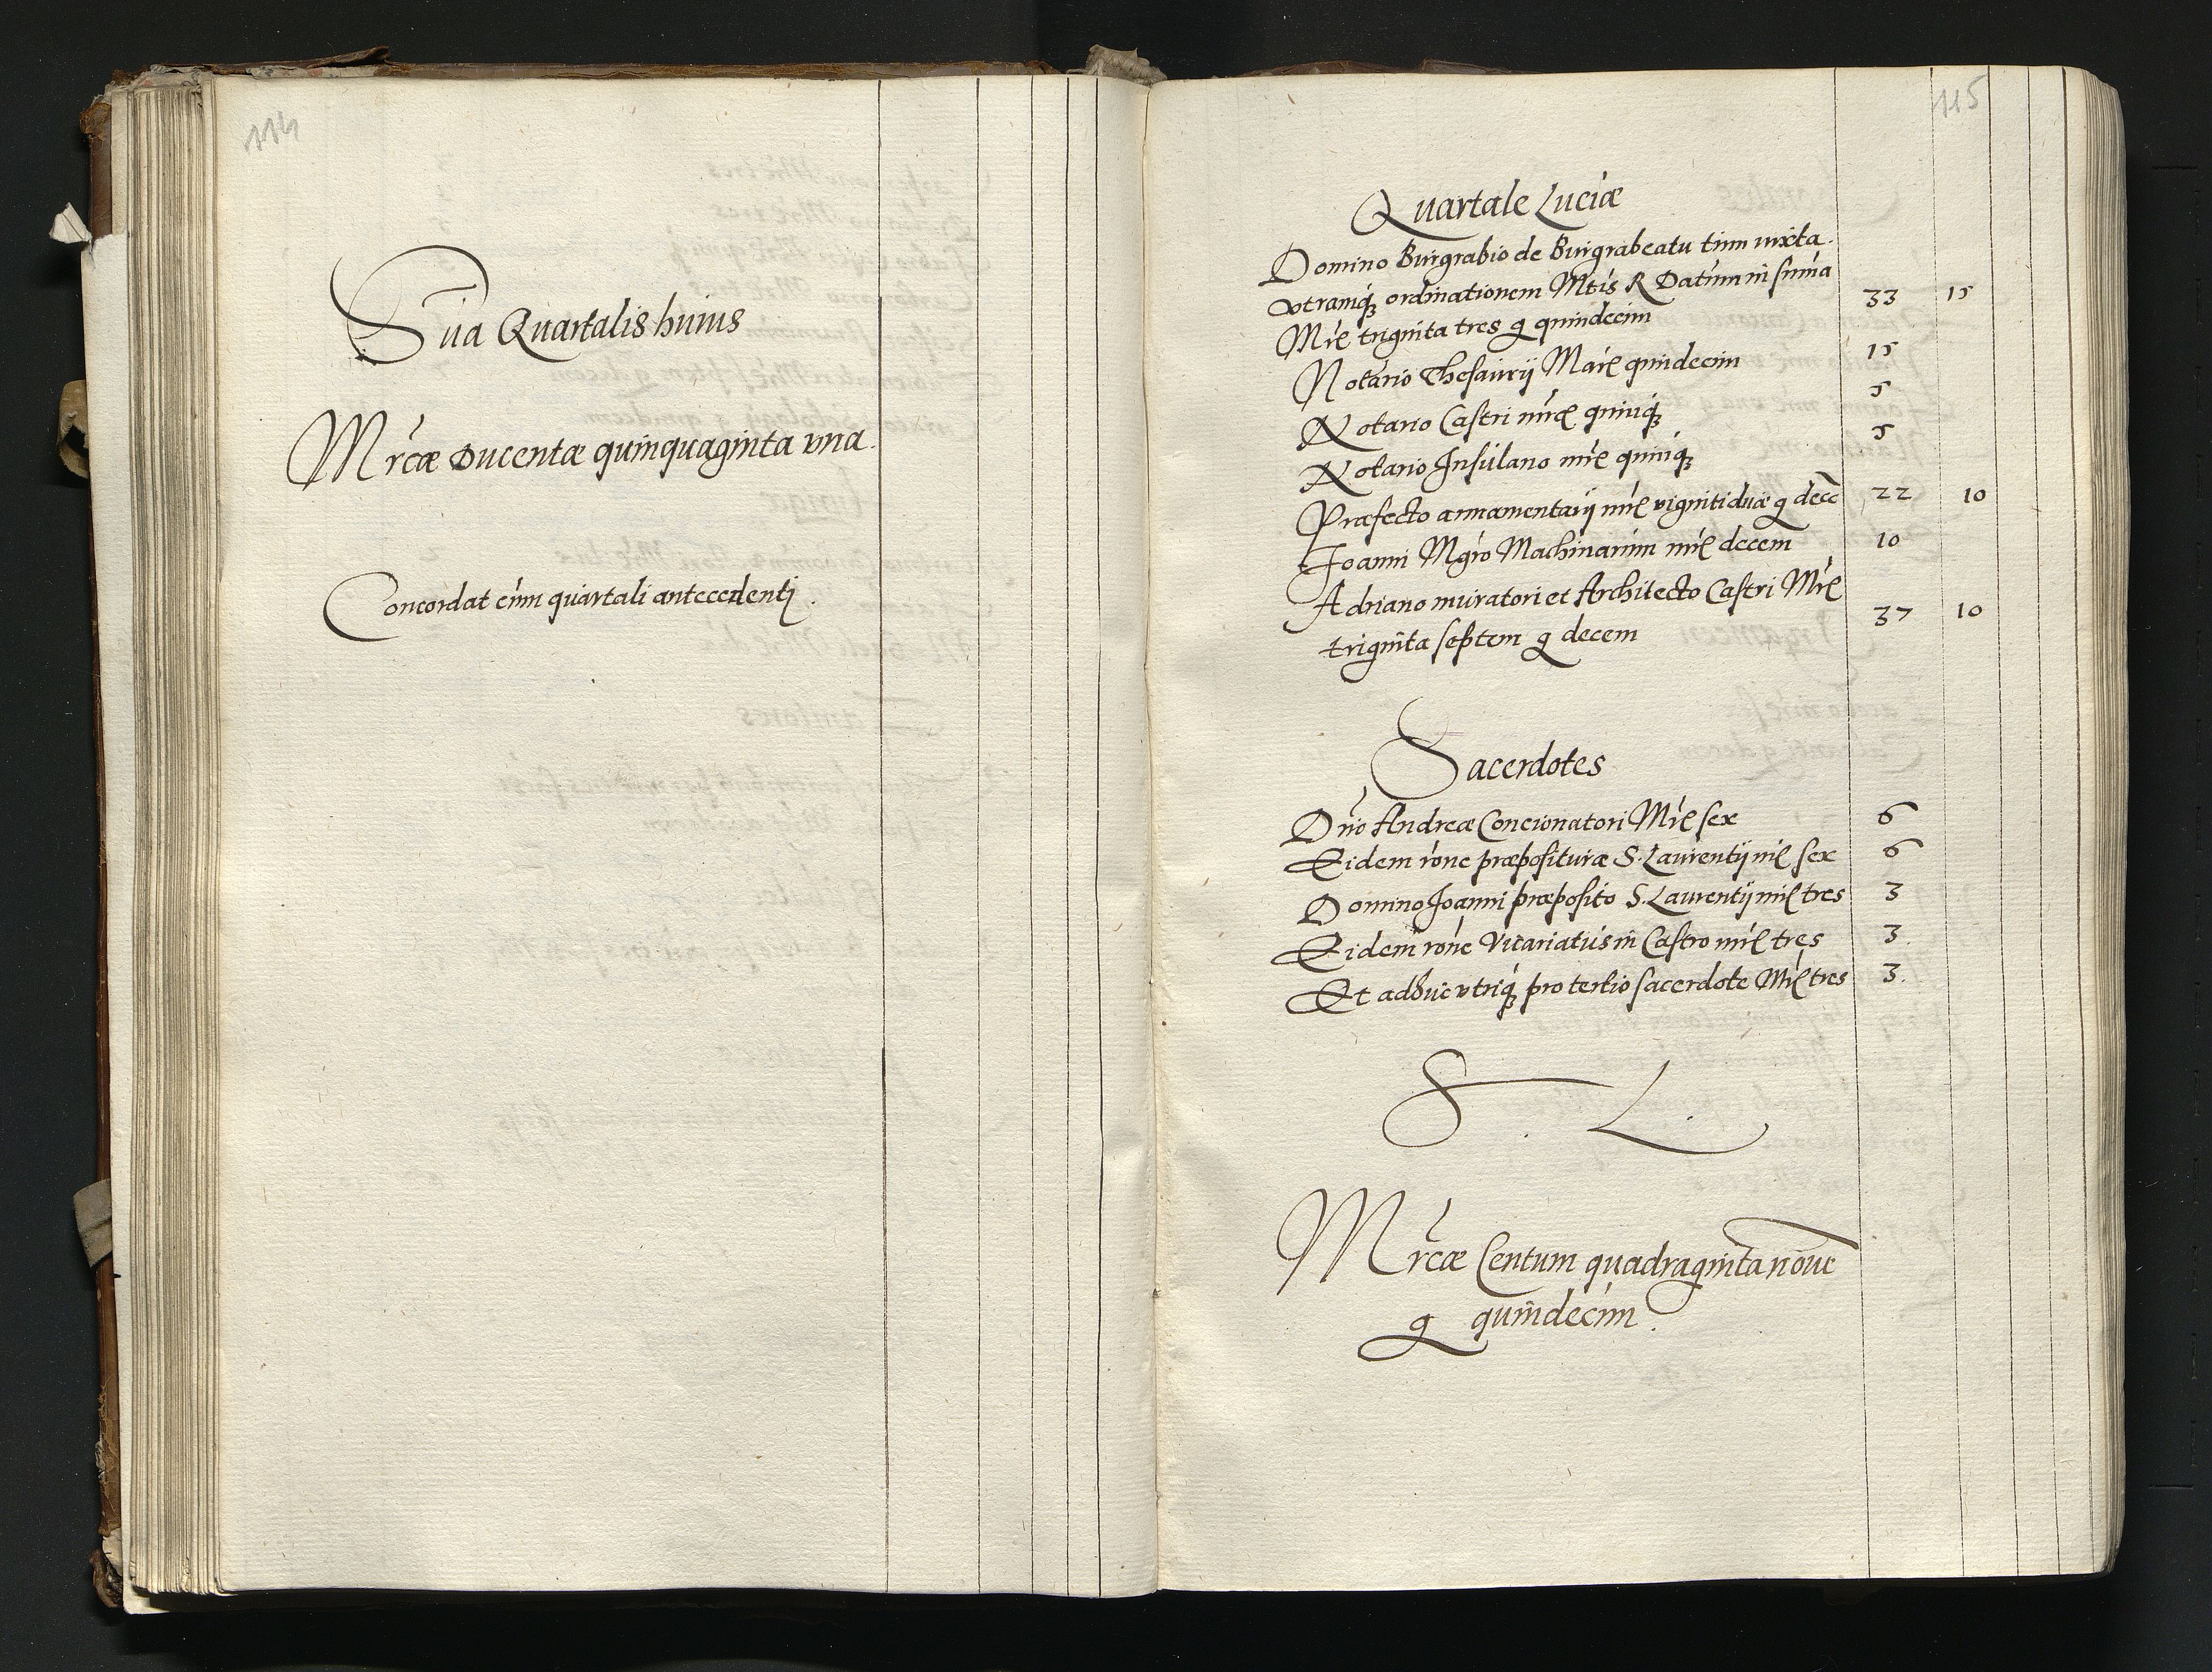 114
Sua Quartalis huius
Mrcæ Ducentæ quinquaginta vna.
Concordat cum quartali antecedenti.
115
Quartale Luciæ
Domino Burgrabio de Burgrabeatu tum iuxta
vtramq ordinationem Mtis R Datum in suma
Mre triginta tres g quindecim 33 15
Notario Thesaurij Marc quindecim 15
Notario Castri mrc quinq 5
Notario Insulano mrc quinq 5
Præfecto armamentarij mrc viginti duæ g dece 22 10
Joanni Mgro Machinarum mrc decem 10
Adriano muratori et Architecto Castri Mrc
triginta septem g decem 37 10
Sacerdotes
Dno Andreæ Concionatori Mrc sex 6
Eidem rone præposituræ S. Laurentij mrc sex 6
Domino Joanni præposito S. Laurentij mrc tres 3
Eidem rone Vicariatus in Castro mrc tres 3
Et adhuc vtriq pro tertio sacerdote Mrc tres 3.
S. L.
Mrcæ Centum quadraginta noue
g quindecim.